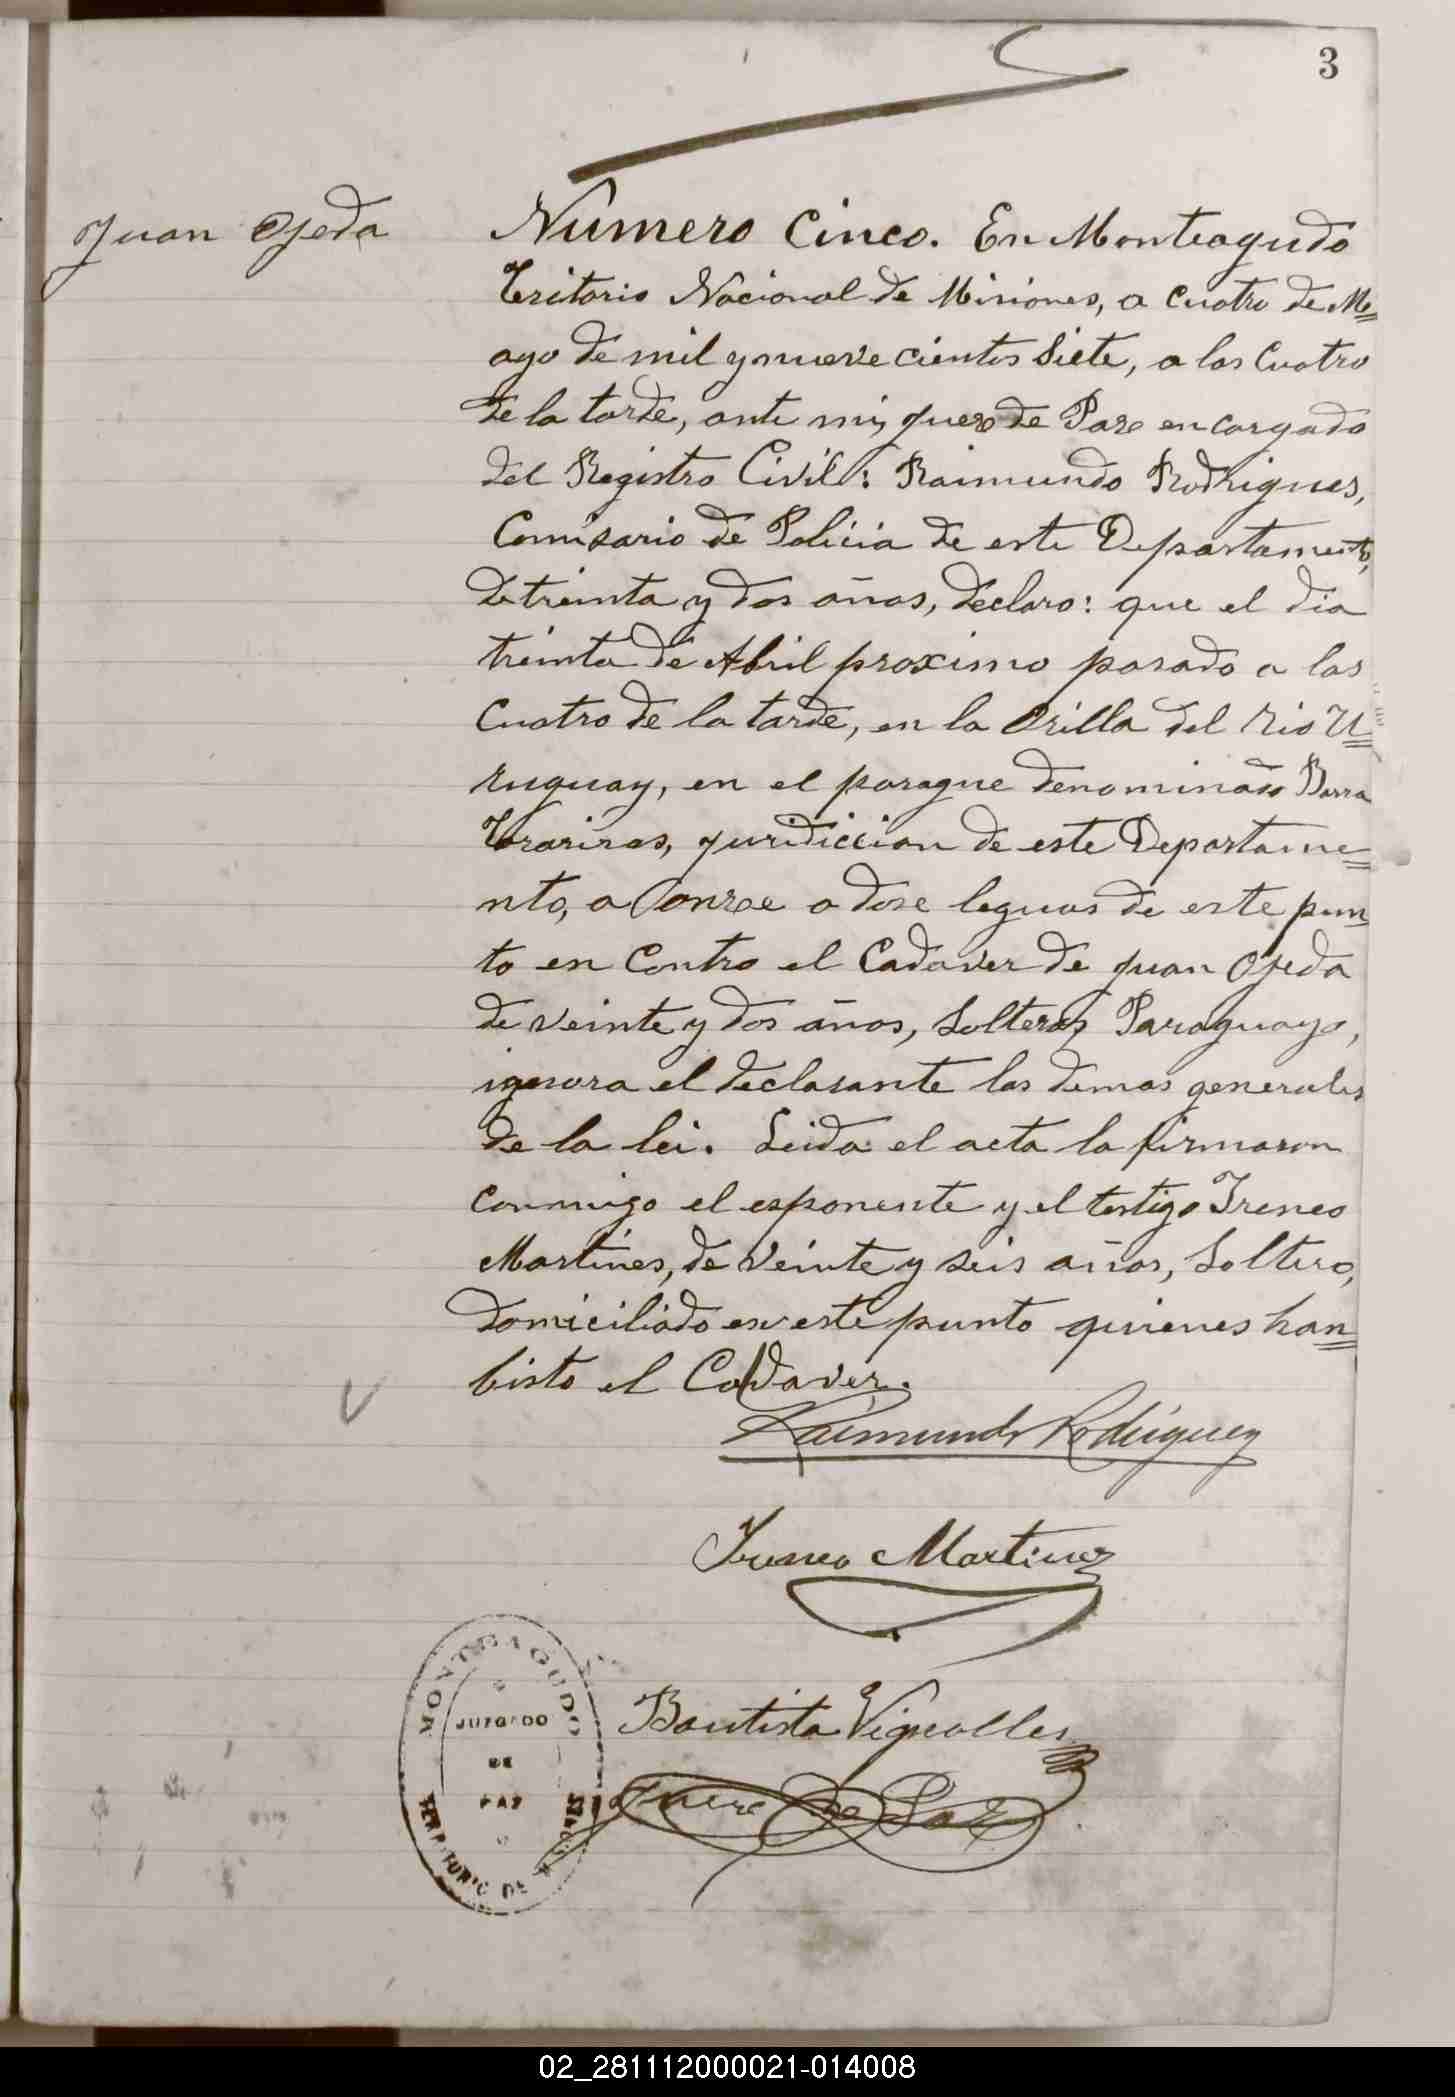 3
Juan Ojeda
Número Cinco. En Monteagudo
Teritorio Nacional de Misiones, a cuatro de M=
ayo de mil y nueve cientos Siete, a las Cuatro
de la tarde, ante mi, Juez de Paz en cargado
del Registro Civil: Raimundo Rodrigues,
Comisario de Policia de este Departamento,
de treinta y dos años, declaro: que el dia
treinta de Abril proximo pasado a las
Cuatro de la tarde, en la Orilla del Rio U=
ruguay, en el parague denominado Barra
juridiccion de este Departame=
nto, a onze o doze leguas de este pun=
to en Contro el Cadaver de Juan Ojeda
de veinte y dos años, Soltero, Paraguayo,
ignora el declarante las demas generales
de la lei. Leida el acta la firmaron
conmigo el esponente y el testigo Ireneo
Martines, de veinte y seis años, Soltero,
domiciliado en este punto quienes han=
bisto el Cadaver.
Raimundo Rodriguez
Ireneo Martinez
Bautista Vignolles
Juez de Paz
MONTEAGUDO
JUZGADO
DE
PAZ
TERRITORIO DE MISIONES
02_281112000021-014008